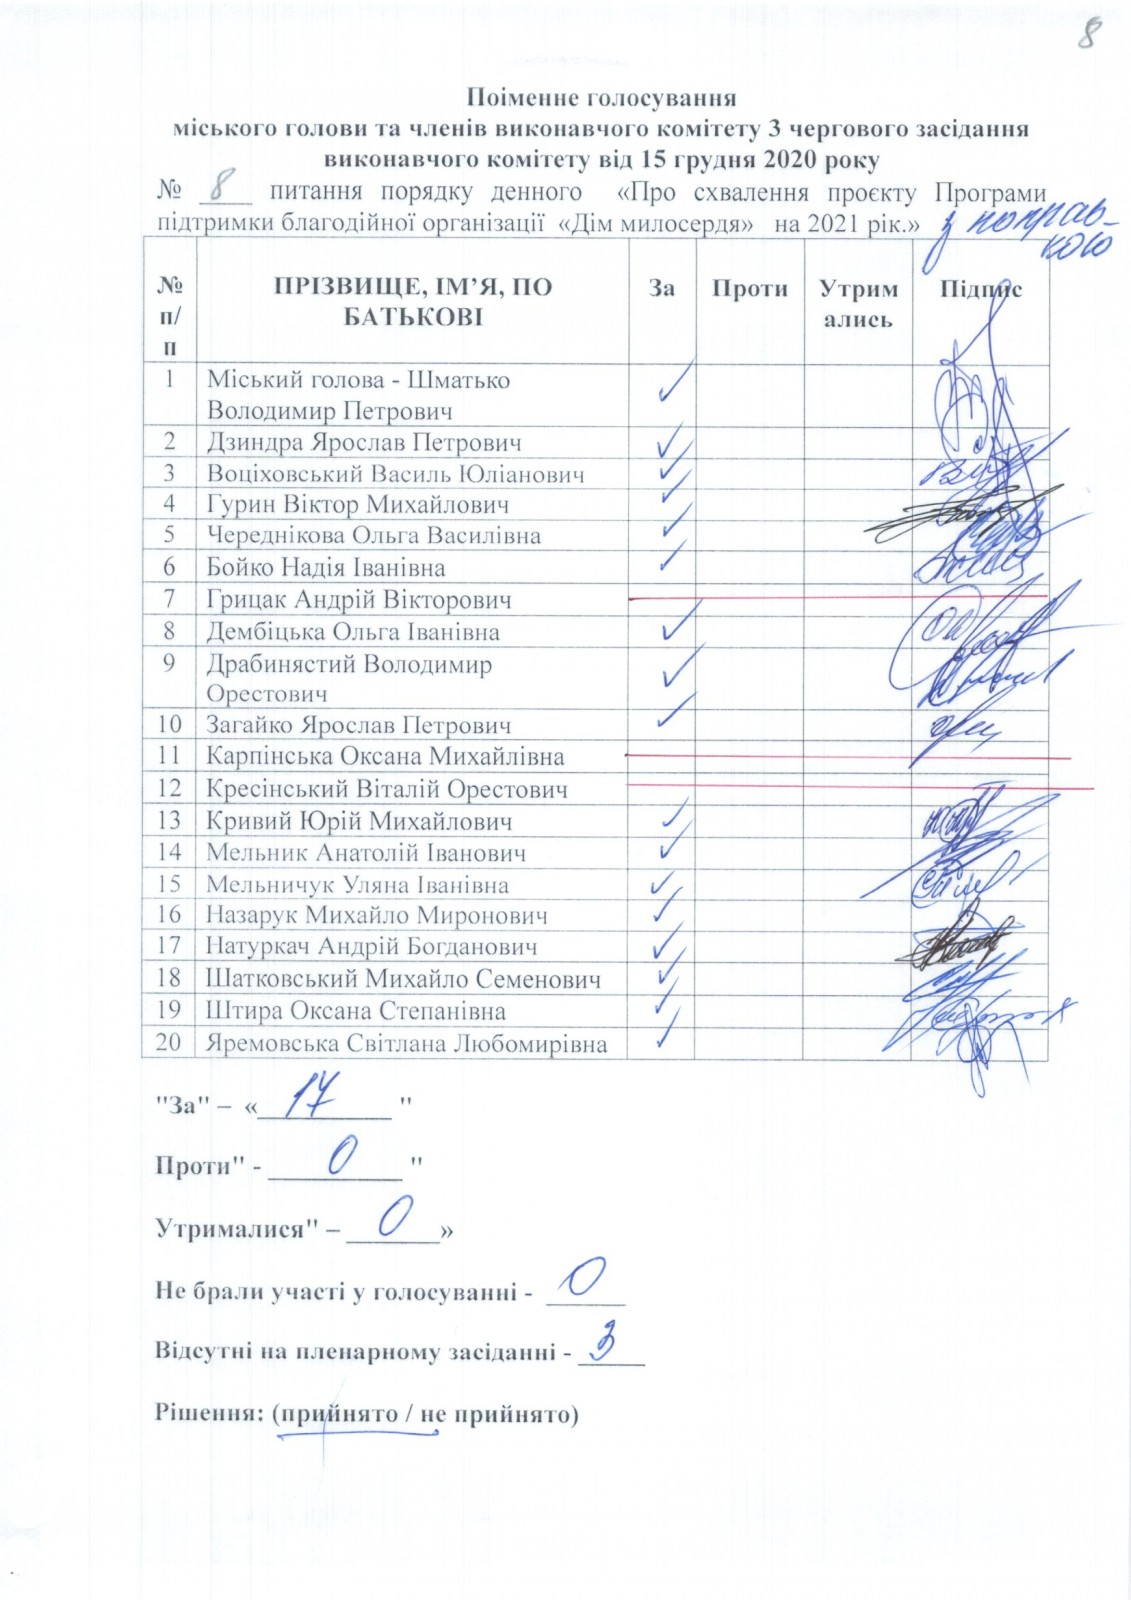 8
Поіменне голосування
міського голови та членів виконавчого комітету 3 чергового засідання
виконавчого комітету від 15 грудня 2020 року
№ 8 питання порядку денного «Про схвалення проєкту Програми
підтримки благодійної організації «Дім милосердя» на 2021 рік.» з поправ-
кою
№ п/п ПРІЗВИЩЕ, ІМ’Я, ПО БАТЬКОВІ За Проти Утрим ались Підпис
1 Міський голова - Шматько
Володимир Петрович ✓
2 Дзиндра Ярослав Петрович ✓
3 Воціховський Василь Юліанович ✓
4 Гурин Віктор Михайлович ✓
5 Череднікова Ольга Василівна ✓
6 Бойко Надія Іванівна ✓
7 Грицак Андрій Вікторович
8 Дембіцька Ольга Іванівна ✓
9 Драбинястий Володимир
Орестович ✓
10 Загайко Ярослав Петрович ✓
11 Карпінська Оксана Михайлівна
12 Кресінський Віталій Орестович
13 Кривий Юрій Михайлович ✓
14 Мельник Анатолій Іванович ✓
15 Мельничук Уляна Іванівна ✓
16 Назарук Михайло Миронович ✓
17 Натуркач Андрій Богданович ✓
18 Шатковський Михайло Семенович ✓
19 Штира Оксана Степанівна ✓
20 Яремовська Світлана Любомирівна ✓
"За" – « 17 "
Проти" - 0 "
Утрималися" – 0 »
Не брали участі у голосуванні - 0
Відсутні на пленарному засіданні - 3
Рішення: (прийнято / не прийнято)